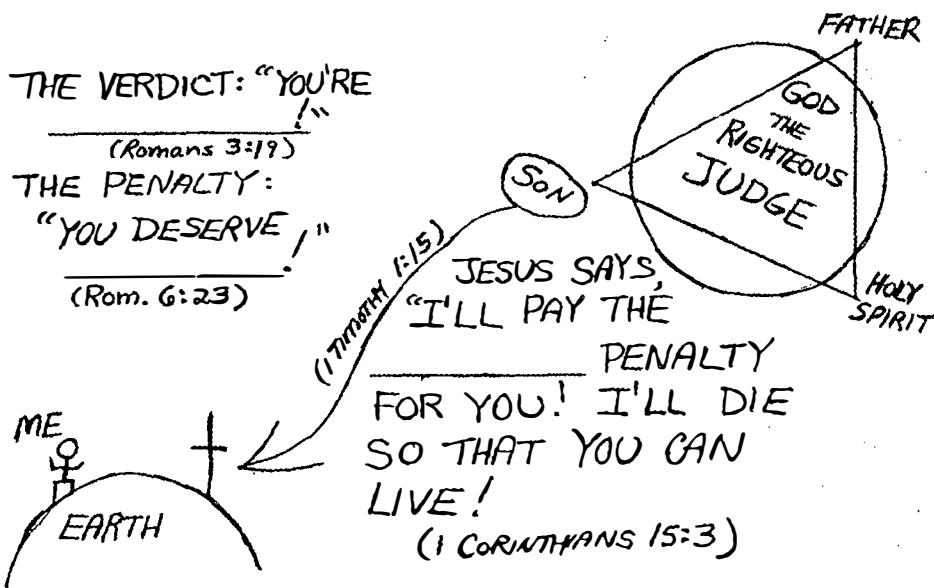 THE VERDICT: "YOU'RE
__________!"
(Romans 3:19)
THE PENALTY:
"YOU DESERVE
__________!"
(Rom. 6:23)
FATHER
GOD
THE
RIGHTEOUS
JUDGE
SON
HOLY
SPIRIT
(1 TIMOTHY 1:15)
JESUS SAYS,
"I'LL PAY THE
__________ PENALTY
FOR YOU! I'LL DIE
SO THAT YOU CAN
LIVE!
(1 CORINTHIANS 15:3)
ME
EARTH